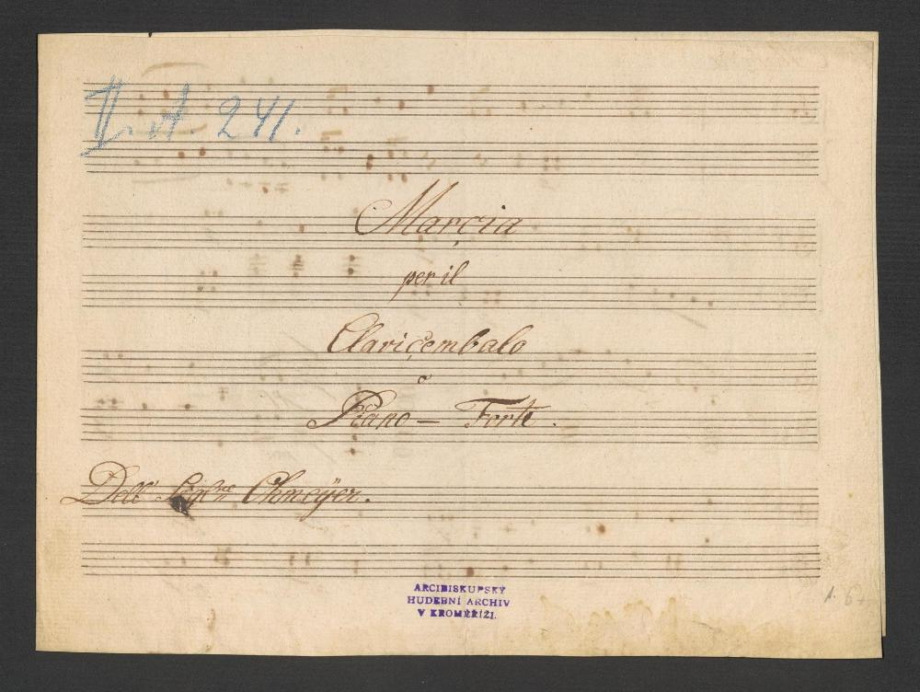 II. A. 241.
Marcia
per il
Clavicembalo
o
Piano – Forte.
Dell' Sigre Ohmeÿer.
ARCIBISKUPSKÝ
HUDEBNÍ ARCHIV
V KROMĚŘÍŽI.